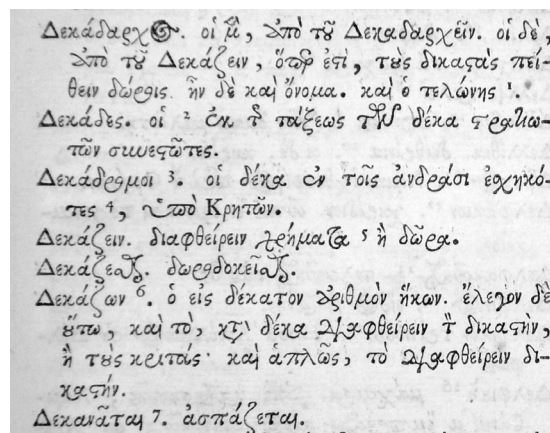 Δεκάδαρχος. οἱ μὲν, ἀπὸ τοῦ Δεκαδαρχεῖν. οἱ δὲ,
ἀπὸ τοῦ Δεκάζειν, ὅπερ ἐστὶ, τοὺς δικαστὰς πεί-
θειν δώροις. ἦν δὲ καὶ ὄνομα. καὶ ὁ τελώνης ¹.
Δεκάδες. οἱ ² ἐκ τῆς τάξεως τῶν δέκα στρατιω-
τῶν συνεστῶτες.
Δεκάδρομοι ³. οἱ δέκα ἐν τοῖς ἀνδράσι ἐσχηκό-
τες ⁴, ὑπὸ Κρητῶν.
Δεκάζειν. διαφθείρειν χρήματα ⁵ ἢ δῶρα.
Δεκάζεσθαι. δωροδοκεῖσθαι.
Δεκάζων ⁶. ὁ εἰς δέκατον ἀριθμὸν ἥκων. ἔλεγον δὲ
οὕτω, καὶ τὸ, κατὰ δέκα διαφθείρειν τὸν δικαστὴν,
ἢ τοὺς κριτάς· καὶ ἁπλῶς, τὸ διαφθείρειν δι-
καστήν.
Δεκανᾶται 7. ἀσπάζεται.